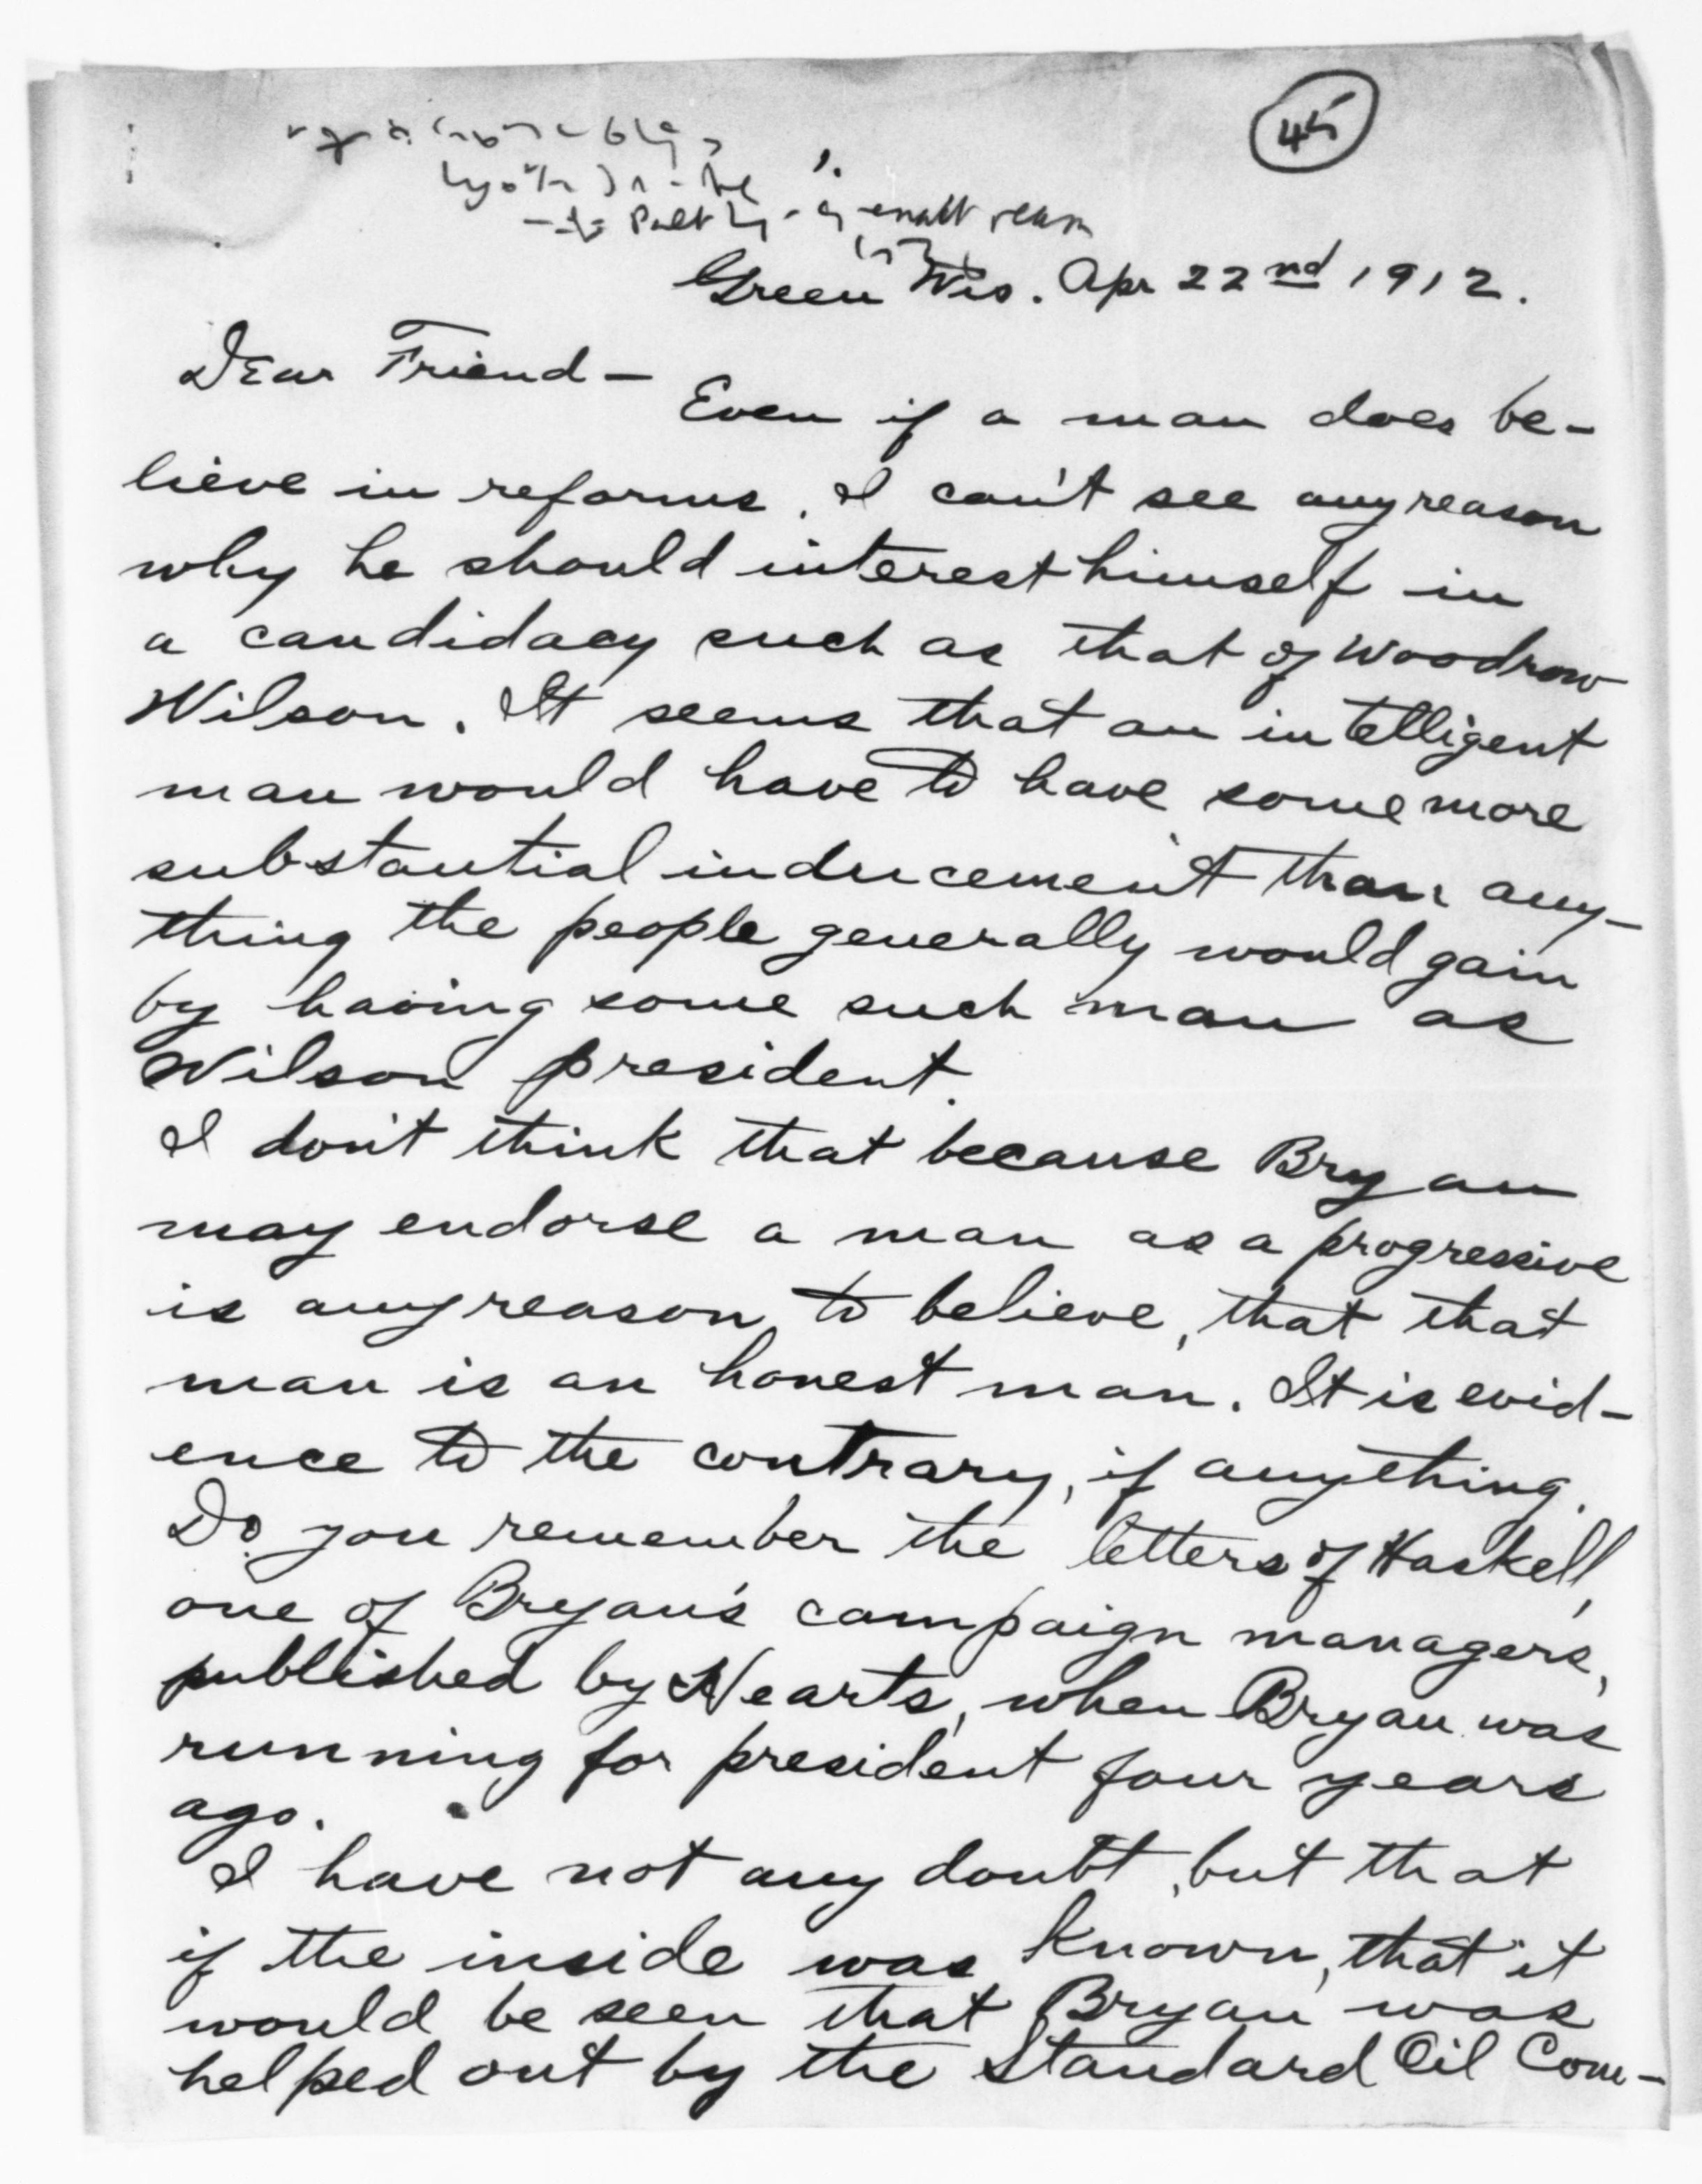 45
Green Wis. Apr 22nd 1912.
Dear Friend —
Even if a man does be-
lieve in reforms, I can't see any reason
why he should interest himself in
a candidacy such as that of Woodrow
Wilson. It seems that an intelligent
man would have to have some more
substantial inducement than any-
thing the people generally would gain
by having some such man as
Wilson president.
I don't think that because Bryan
may endorse a man as a progressive
is any reason to believe, that that
man is an honest man. It is evid-
ence to the contrary, if anything.
Do you remember the letters of Haskell,
one of Bryan's campaign managers,
published by Hearts, when Bryan was
running for president four years
ago.
I have not any doubt, but that
if the inside was known, that it
would be seen that Bryan was
helped out by the Standard Oil Com-